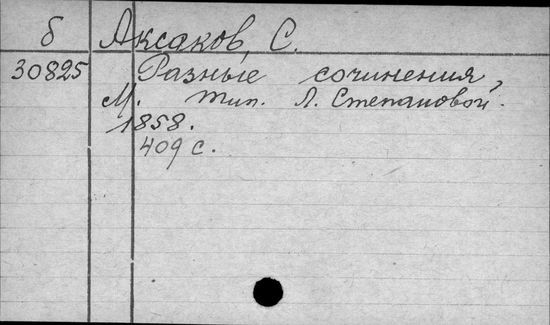 б Аксаков, С.
30825 Разные сочинения,
М. тип. Л. Степановой.
1858.
409 с.